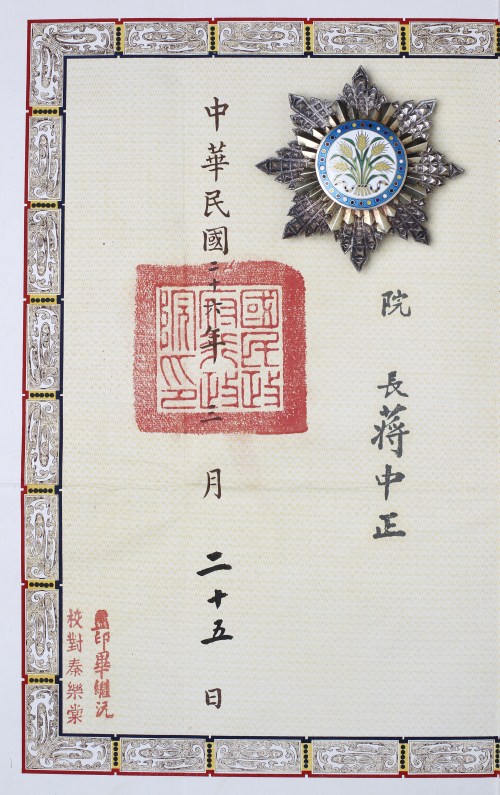 院長蔣中正
中華民國二十六年二月二十五日
國民政
府行政
院印
監印畢繼沅
校對秦樂棠